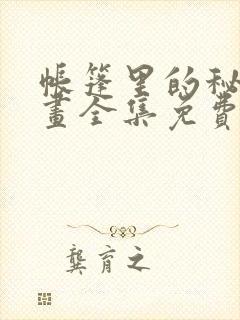 帳篷里的秘
畫全集免費
龔育之